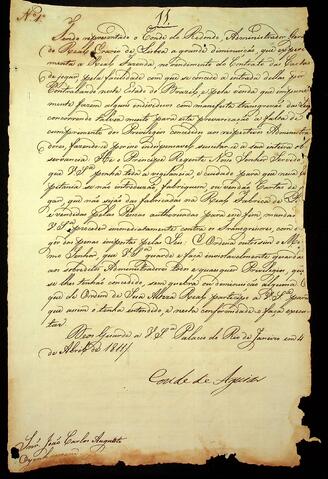 N.º 1.
11.
Tendo representado o Conde de Rezende, Administrador Geral
do Real Correio de Lisboa a grande diminuição, que experi-
menta a Real Fazenda, no rendimento do Contrato das Cartas
de jogar, pela facilidade com que se concede a entrada dellas por
Contrabando neste Estado do Brazil, e pela venda que impune-
mente fazem alguns individuos com manifesta transgressão das Leys
concorrendo talvez muito para esta prevaricação a falta de
cumprimento dos Privilegios concedidos aos respectivos Administra-
dores, fazendo-se por isso indispensavel suscitar-se a sua inteira ob-
servancia: He o Principe Regente Nosso Senhor Servido
que V. S.ª ponha toda a vigilancia, e cuidado para que nessa Ca-
pitania se não introduzão, fabriquem, ou vendão Cartas de jo-
gar que não sejão das fabricadas na Real Fabrica de Lx.ª
e vendidas pelas Pessoas authorizadas para esse fim, mandan-
V. S.ª proceder immediatamente contra os Transgressores, com o ri-
gor das penas impostas pelas Leis. Ordena outrosim o Mes-
mo Senhor que V. S.ª guarde e faça inviolavelmente guardar
aos sobreditos Administradores todos e quaesquer Privilegios, que
se lhes tenhão concedido, sem quebra ou diminuição alguma. O
que de Ordem de Sua Alteza Real participo a V. S.ª para
que assim o tenha entendido, e nesta conformidade o faça execu-
tar.
Deos Guarde a V. S.ª Palacio do Rio de Janeiro em 4
de Abril de 1811
Conde de Aguiar
Snr. João Carlos Augusto